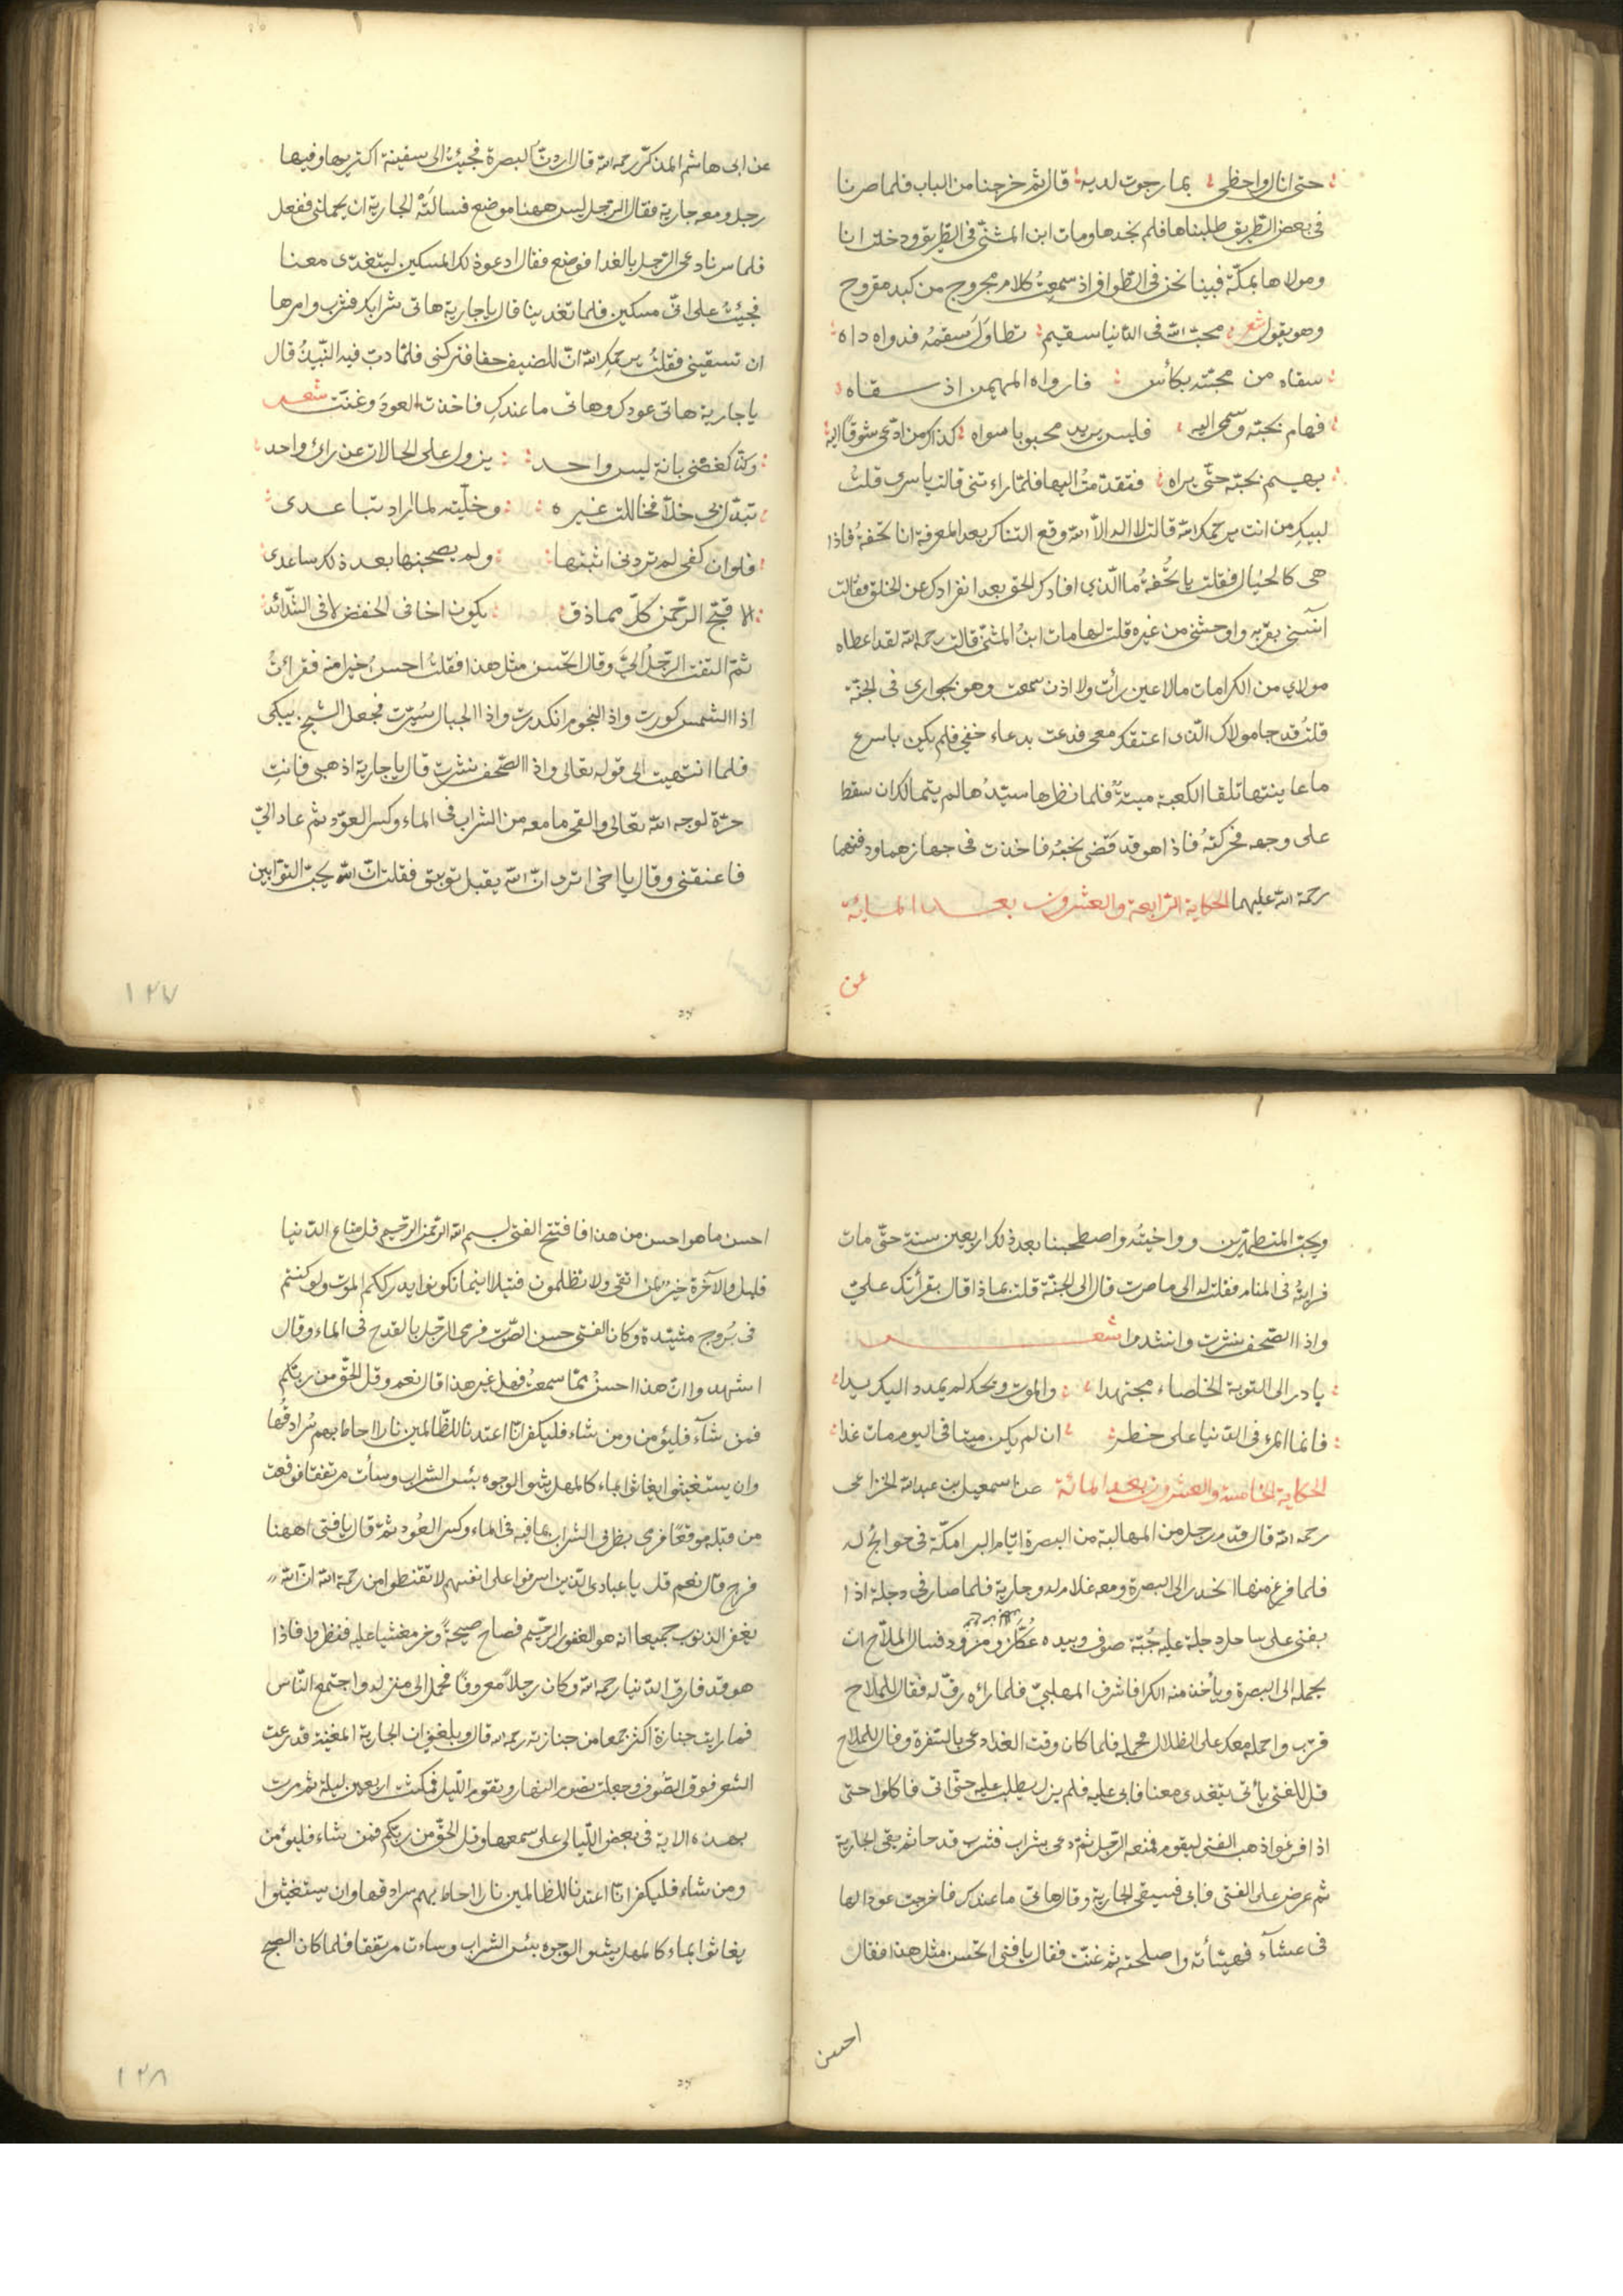 حتى انال واحظى بما رجوت لديه قال ثم خرجنا من الباب فلما صرنا
فى بعض الطريق طلبناها فلم نجدها ومات ابن المثنى فى الطريق ودخلت انا
ومولاها بمكة فبينا نحن فى الطواف اذ سمعت كلام مجروح من كبد مقروح
وهو يقول شعر محب الله فى الدنيا سقيم تطاول سقمه فدواه داه
سقاه من محبته بكأس فارواه المهيمن اذ سقاه
فهام بحبه وسمى اليه فليس يريد محبوبا سواه كذاك من ادعى شوقا اليه
يهيم بحبه حتى يراه فتقدمت اليها فلما راءتنى قالت ياسرى قلت
لبيك من انت يرحمك الله قالت لا اله الا الله وقع التناكر بعد المعرفة انا تحفة فاذا
هى كالخيال فقلت يا تحفة ما الذى افادك الحق بعد انفرادك عن الخلق فقالت
آنسنى بقربه واوحشنى من غيره قلت لها مات ابن المثنى قالت رحمه الله لقد اعطاه
مولاي من الكرامات مالا عين رأت ولا اذن سمعت وهو بجوارى فى الجنة
قلت قد جا مولاك الذى اعتقك معى فدعت بدعاء خفى فلم يكن باسرع
ما عاينتها تلقا الكعبة ميتة فلما نظرها سيدها لم يتمالك ان سقط
على وجهه فحركته فاذا هو قد قضى نحبه فاخذت فى جهازهما ودفنهما
رحمة الله عليهما الحكاية الرابعة والعشرون بعد المائة
عن
عن ابى هاشم المذكر رحمه الله قال اردت البصرة فجيئت الى سفينة اكتريها وفيها
رجل ومعه جارية فقال الرجل ليس ههنا موضع فسالته الجارية ان يحملنى ففعل
فلما سرنا دعى الرجل بالغدا فوضع فقال ادعو ذلك المسكين ليتغدى معنا
فجيئت على انى مسكين فلما تغدينا قال يا جارية هاتى شرابك فشرب وامرها
ان تسقينى فقلت يرحمك الله ان للضيف حقا فتركنى فلما دب فيه النبيذ قال
يا جارية هاتى عودك وهاتى ما عندك فاخذت العود وغنت شعر
وكنا كغصنى بانة ليس واحد يزول على الحالات عن رائ واحد
تبدل بى خلا فخاللت غيره وخليته لما اراد تباعدى
فلو ان كفى لم تردنى ابنتها ولم يصحبنها بعد ذلك ساعدى
الا قبح الرحمن كل مماذق يكون اخا فى الخفض لا فى الشدائد
ثم التفت الرجل الي وقال اتحسن مثل هذا فقلت احسن خيرا منه فقرائت
اذا الشمس كورت واذا النجوم انكدرت واذا الجبال سيرت فجعل الشيخ يبكى
فلما انتهيت الى قوله تعالى واذا الصحف نشرت قال يا جارية اذهبى فانت
حرة لوجه الله تعالى والقى ما معه من الشراب فى الماء وكسر العود ثم عاد الي
فاعنقنى وقال يا اخى اترى ان الله يقبل توبتى فقلت ان الله يحب التوابين
١٢٧
ويحب المتطهرين وواخيته واصطحبنا بعد ذلك اربعين سنة حتى مات
فرايته فى المنام فقلت له الى ما صرت قال الى الجنة قلت بماذا قال بقرأتك علي
واذا الصحف نشرت وانشدوا شعر
يادر الى التوبة الخلصاء مجتهدا والموت ويحك لم يمدد اليك يدا
فانما المرء فى الدنيا على خطر ان لم يكن ميتا فى اليوم مات غدا
الحكاية الخامسة والعشرون بعد المائة عن اسمعيل بن عبدالله الخزاعى
رحمه الله قال قدم رجل من المهالبة من البصرة ايام البرامكة فى حوائج له
فلما فرغ منها انحدر الى البصرة ومعه غلام له وجارية فلما صار فى دجلة اذا
بفتى على ساحل دجلة عليه جبة صوف وبيده عكاز ومزود فسال الملاح ان
يحمله الى البصرة ويأخذ منه الكرا فاشرف المهلبى فلما راه رق له فقال للملاح
قرب واحمله معك على الظلال فحمله فلما كان وقت الغدا دعى بالسفرة وقال للملاح
قل للفتى يأتى يتغدى معنا فابى عليه فلم يزل يطلب عليه حتى اتى فاكلوا حتى
اذا فرغوا ذهب الفتى ليقوم فمنعه الرجل ثم دعى بشراب فشرب قدحا ثم سقى الجارية
ثم عرض على الفتى فابى فسيقى الجارية وقال هاتى ما عندك فاخرجت عودا لها
فى عشآء فهيئأته واصلحته ثم غنت فقال يا فتى اتحسن مثل هذا فقال
احسن
احسن ما هو احسن من هذا فافتتح الفتى بسم الله الرحمن الرحيم قل متاع الدنيا
قليل والآخرة خير لمن اتقى ولا تظلمون فتيلا اينما تكونوا يدرككم الموت ولو كنتم
فى بروج مشيدة وكان الفتى حسن الصوت فرمى الرجل بالقدح فى الماء وقال
اشهدوا ان هذا احسن مما سمعت فهل غير هذا قال نعم وقل الحق من ربكم
فمن شآء فليؤمن ومن شاء فليكفر انا اعتدنا للظالمين نارا احاط بهم سرادقها
وان يستغيثوا يغاثوا بماء كالمهل يشوى الوجوه بئس الشراب وسأت مرتفقا فوقعت
من قبله موقعا فرمى بظرفى الشراب بما فيه فى الماء وكسر العود ثم قال يا فتى اههنا
فرج قال نعم قل يا عبادى الذين اسرفوا على انفسهم لا تقنطوا من رحمة الله ان الله
يغفر الذنوب جميعا انه هو الغفور الرحيم فصاح صيحة وخر مغشيا عليه فنظروا فاذا
هو قد فارق الدنيا رحمه الله وكان رجلا معروفا فحمل الى منزله واجتمع الناس
فما رايت جنازة اكثر جمعا من جنازته رحمه الله قال وبلغنى ان الجارية المغنية تدرعت
الشعر فوق الصوف وجعلت تصوم النهار وتقوم الليل فمكثت اربعين ليلة ثم مرت
بهذه الاية فى بعض الليالى على سمعها وقل الحق من ربكم فمن شاء فليؤمن
ومن شاء فليكفر انا اعتدنا للظالمين نارا احاط بهم سرادقها وان يستغيثوا
يغاثوا بماء كالمهل يشوى الوجوه بئس الشراب وساءت مرتفقا فلما كان الصبح
١٢٨